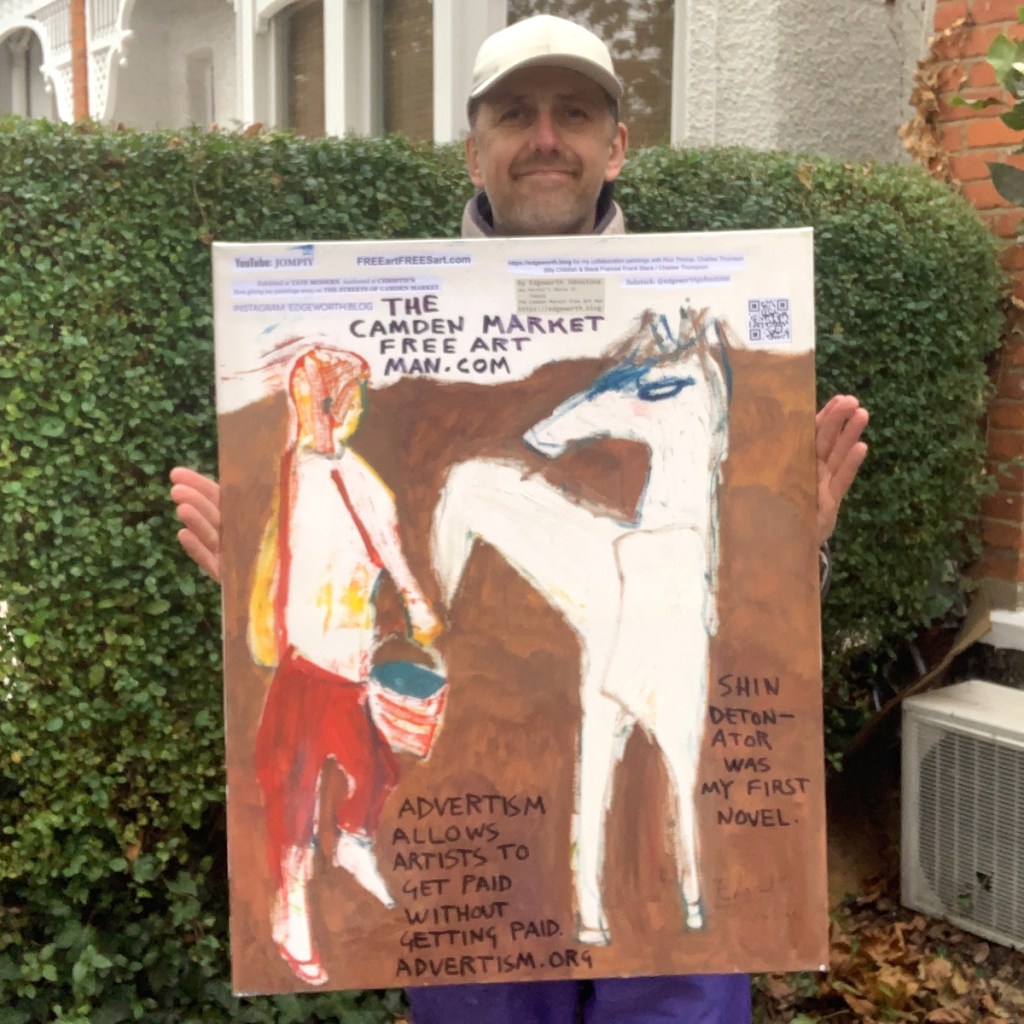 YouTube: JOMPIY
FREEartFREESart.com
https://edgeworth.blog for my collaboration paintings with Ron Throop, Charles Thomson
Billy Childish & Black Francis/ Frank Black / Charles Thompson
Exhibited at TATE MODERN. Auctioned at CHRISTIE'S
Now giving my paintings away on THE STREETS OF CAMDEN MARKET
Substack: @edgeworthjohnstone
by Edgeworth Johnstone
The Camden Market Free Art Man
https://edgeworth.blog
INSTAGRAM: EDGEWORTH.BLOG
THE
CAMDEN MARKET
FREE ART
MAN.COM
SHIN
DETON-
ATOR
WAS
MY FIRST
NOVEL.
ADVERTISM
ALLOWS
ARTISTS TO
GET PAID
WITHOUT
GETTING PAID.
ADVERTISM.ORG